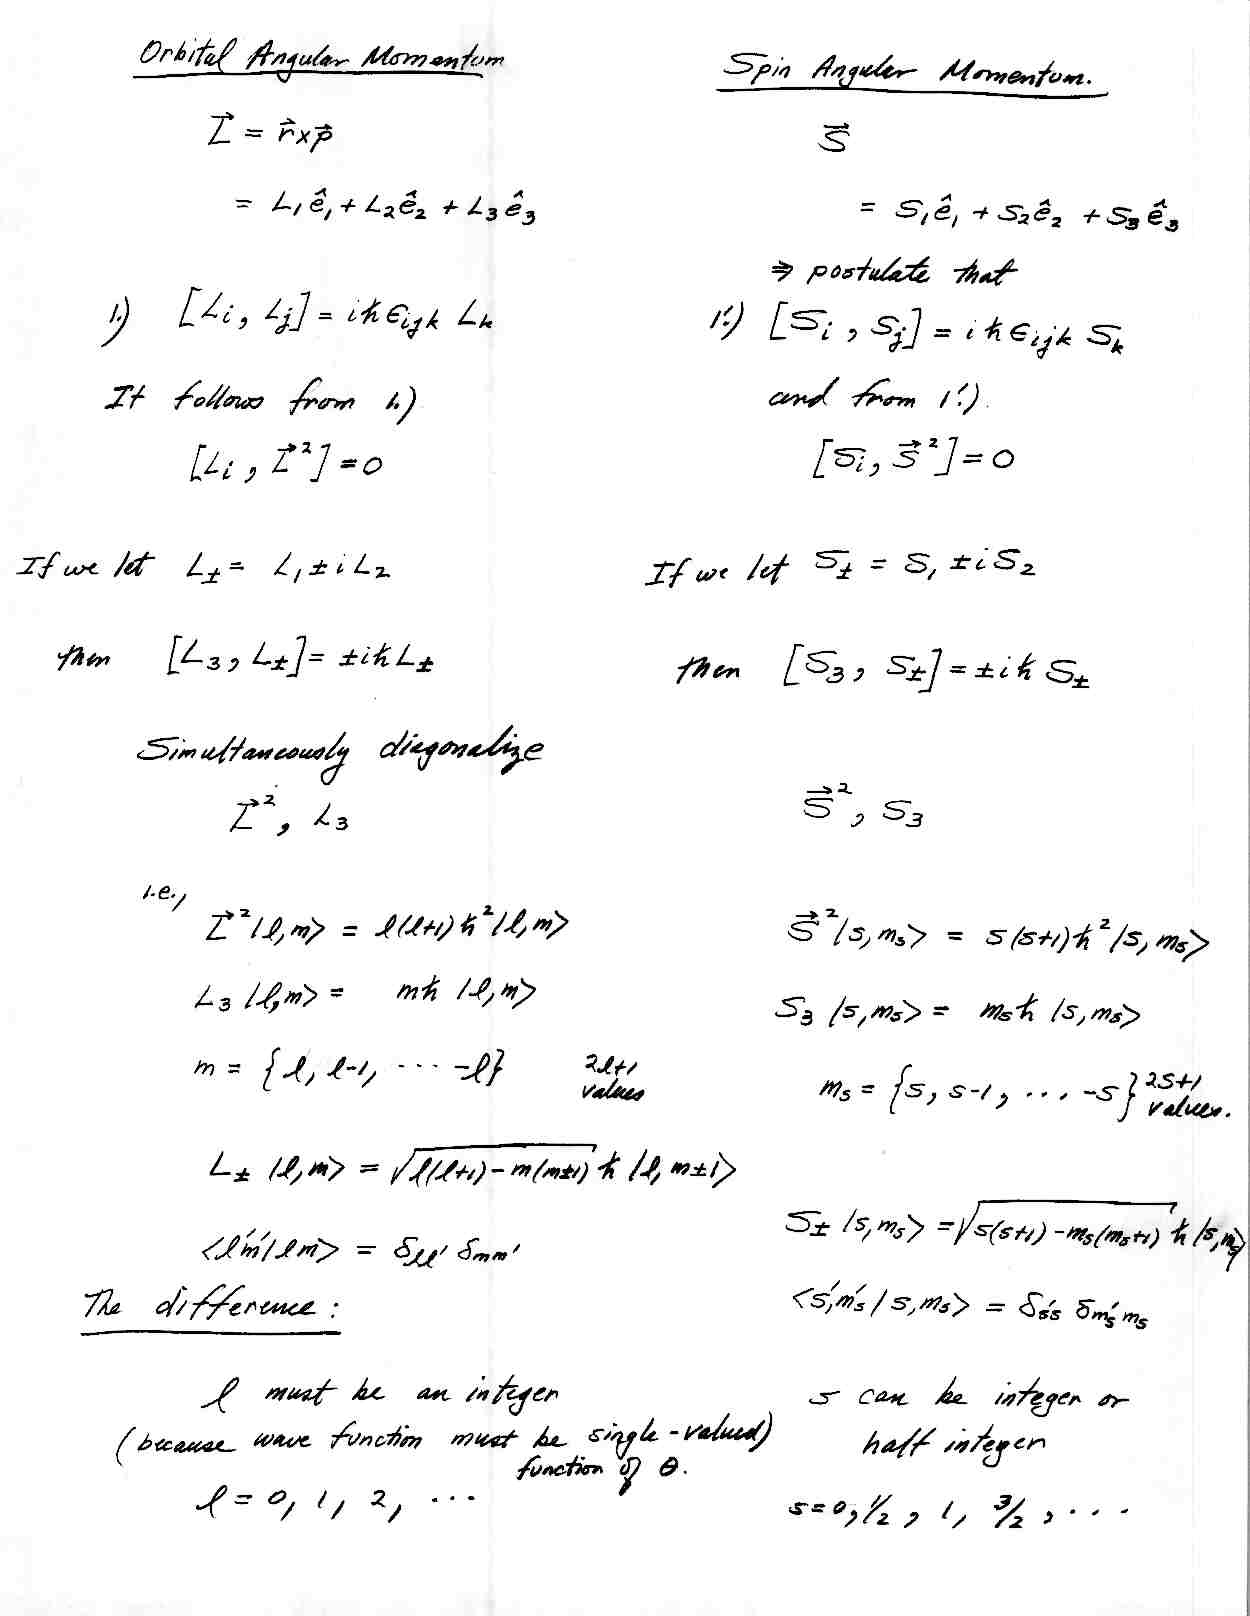 Orbital Angular Momentum
L⃗ = r⃗ x p⃗
= L₁ê₁ + L₂ê₂ + L₃ê₃
1.) [Lᵢ, Lⱼ] = iħϵᵢⱼₖ Lₖ
It follows from 1.)
[Lᵢ, L⃗²] = 0
If we let L± = L₁ ± iL₂
then [L₃, L±] = ±iħL±
Simultaneously diagonalize
L⃗², L₃
i.e.,
L⃗²|l,m> = l(l+1)ħ²|l,m>
L₃|l,m> = mħ |l,m>
m = {l, l-1, ... -l} 2l+1
values
L± |l,m> = √(l(l+1) - m(m±1)) ħ |l, m±1>
<l'm'|lm> = δll' δmm'
The difference:
l must be an integer
(because wave function must be single-valued)
function of θ.
l = 0, 1, 2, ...
Spin Angular Momentum.
S⃗
= S₁ê₁ + S₂ê₂ + S₃ê₃
⇒ postulate that
1'.) [Sᵢ, Sⱼ] = iħϵᵢⱼₖ Sₖ
and from 1'.)
[Sᵢ, S⃗²] = 0
If we let S± = S₁ ± iS₂
then [S₃, S±] = ±iħ S±
S⃗², S₃
S⃗²|s,mₛ> = s(s+1)ħ²|s,mₛ>
S₃ |s,mₛ> = mₛħ |s,mₛ>
mₛ = {s, s-1, ... -s} 2s+1
values.
S± |s,mₛ> = √(s(s+1) - mₛ(mₛ+1)) ħ |s,mₛ>
<s',mₛ'|s,mₛ> = δs's δmₛ'mₛ
s can be integer or
half integer
s = 0, 1/2, 1, 3/2, ...